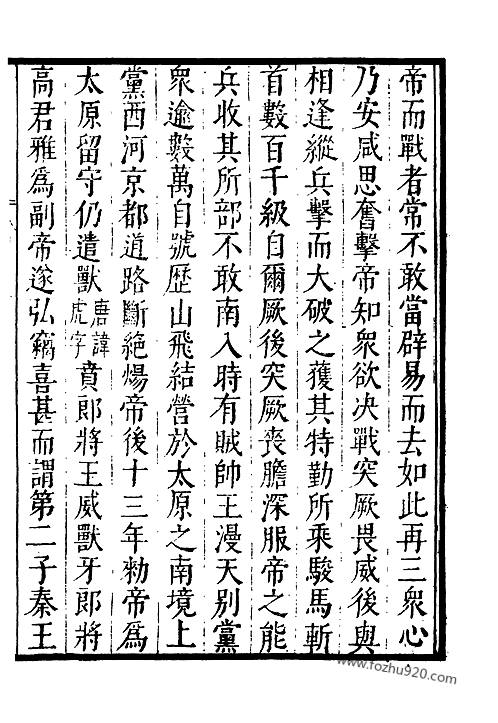 帝而戰者常不敢當辟易而去如此再三衆心
乃安咸思奮擊帝知衆欲决戰突厥畏威後與
相逢縱兵擊而大破之獲其特勤所乘駿馬斬
首數百千級自爾厥後突厥喪膽深服帝之能
兵收其所部不敢南入時有賊帥王漫天别黨
衆逾數萬自號歷山飛結營於太原之南境上
黨西河京都道路斷絶煬帝後十三年勑帝爲
太原留守仍遣獸唐諱虎字賁郎將王威獸牙郎將
高君雅爲副帝遂弘竊喜甚而謂第二子秦王
www.fozhu920.com